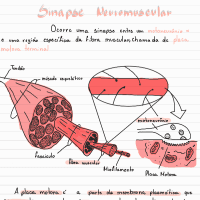 Sinapse Neuromuscular
Ocorre uma sinapse entre um motoneurônio
e uma região específica da fibra muscular, chamada de placa
motora terminal
Tendão
músculo esquelético
motoneurônio
Fascículo
fibra muscular
Miofilamento
Placa Motora
A placa motora é a parte da membrana plasmática que